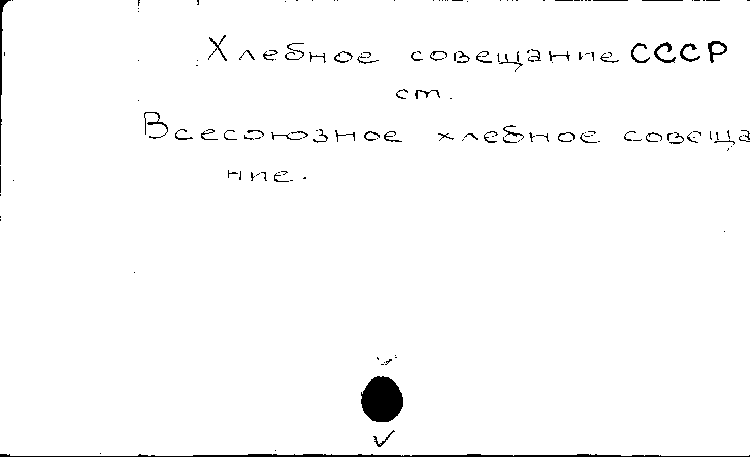 Хлебное совещание СССР
ст.
Всесоюзное хлебное совеща
ние.